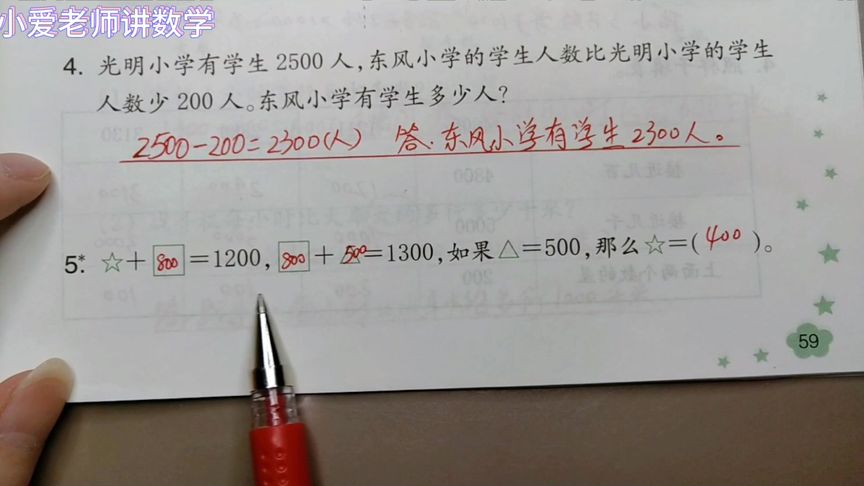 小爱老师讲数学
4. 光明小学有学生 2500 人,东风小学的学生人数比光明小学的学生
人数少 200 人。东风小学有学生多少人?
2500-200=2300(人) 答:东风小学有学生2300人。
5*. ☆+800=1200,800+500=1300,如果△=500,那么☆=(400)。
59